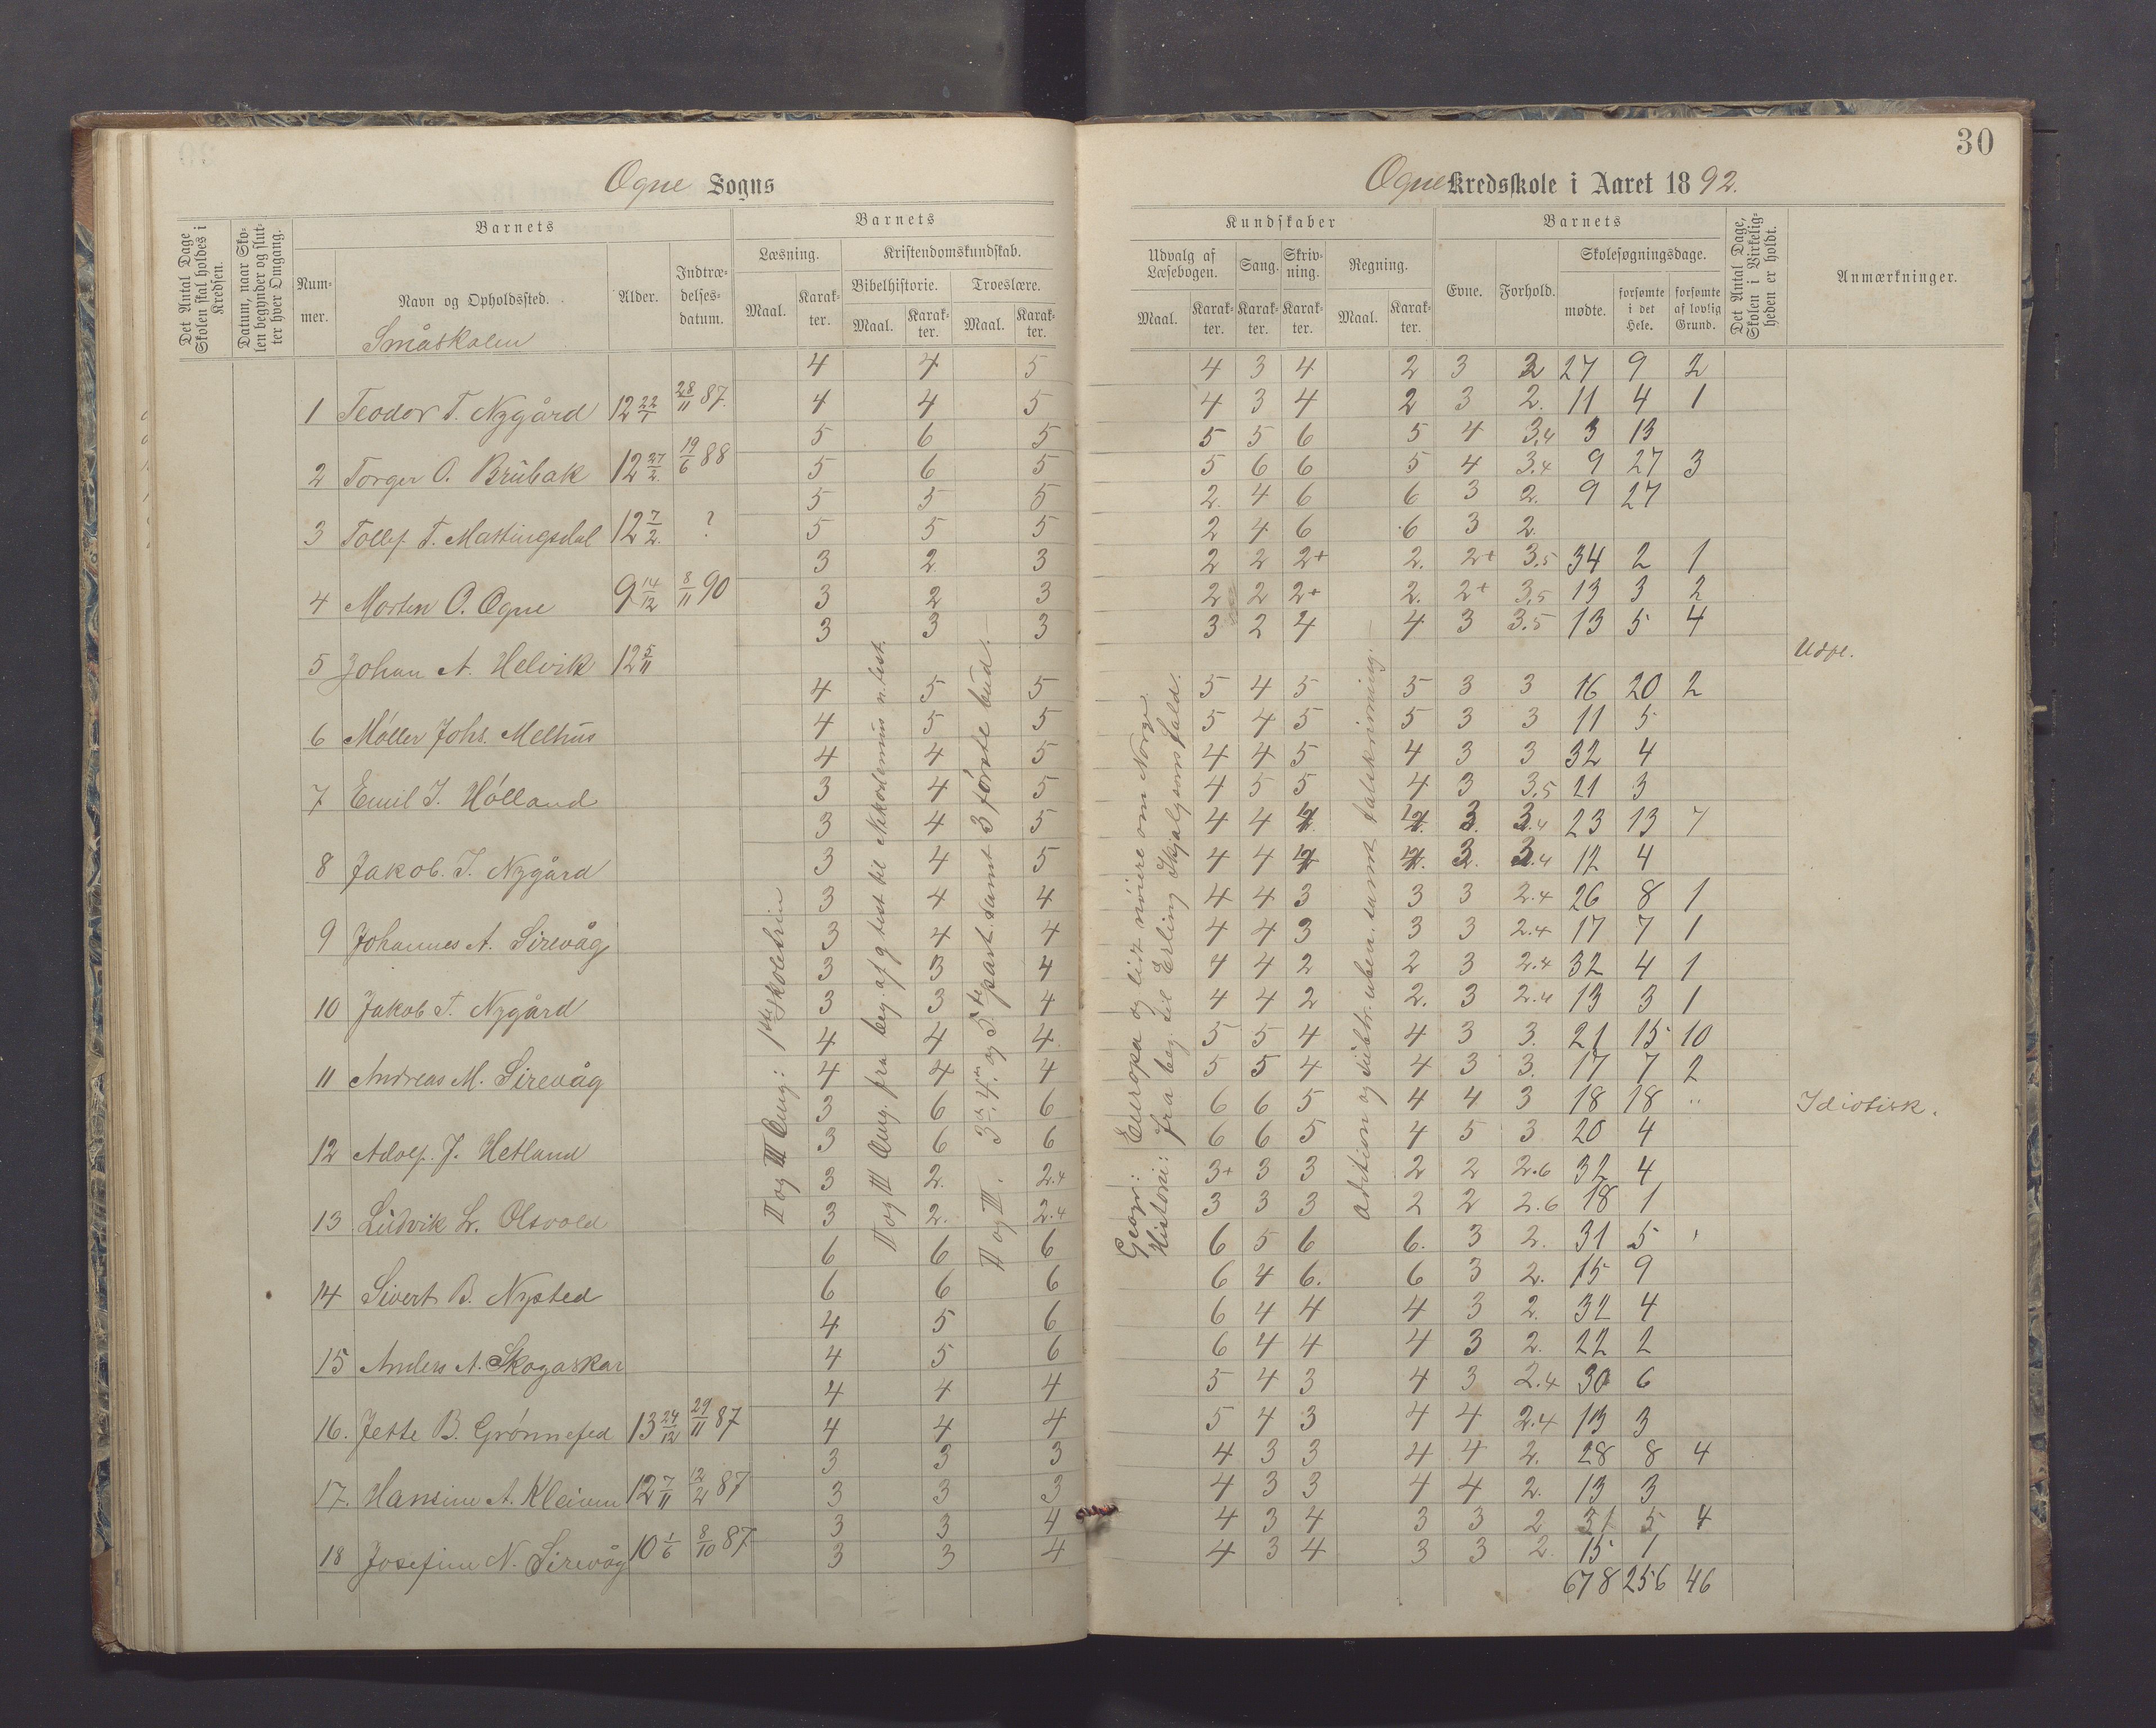 30
Ogne Sogns
Ogne Kredsskole i Aaret 1892.
Det Antal Dage Skolen skal holdes i Kredsen.
Datum, naar Skolen begynder og slutter hver Omgang.
Barnets
Nummer.
Navn og Opholdssted.
Småskolen
Alder.
Indtrædelsesdatum.
Barnets
Læsning.
Maal.
Karakter.
Kristendomskundskab.
Bibelhistorie.
Maal.
Karakter.
Troeslære.
Maal.
Karakter.
Kundskaber
Udvalg af Læsebogen.
Maal.
Karakter.
Sang.
Karakter.
Skrivning.
Karakter.
Regning.
Maal.
Karakter.
Barnets
Evne.
Forhold.
Skolesøgningsdage.
mødte.
forsømte i det Hele.
forsømte af lovlig Grund.
Det Antal Dage, Skolen i Virkeligheden er holdt.
Anmærkninger.
4 4 5 4 3 4 2 3 2 27 9 2
1 Teodor T. Nygård 12 22/1 28/11 87. 4 4 5 4 3 4 2 3 2. 11 4 1
5 6 5 5 5 6 5 4 3.4 3 13
2 Torger O. Brübak 12 27/2. 19/6 88 5 6 5 5 6 6 5 4 3.4 9 27 3
5 5 5 2. 4 6 6 3 2. 9 27
3 Tollef T. Mattingsdal 12 7/2. ? 5 5 5 2 4 6 6 3 2.
3 2. 3 2 2 2+ 2. 2+ 3.5 34 2 1
4 Morten O. Ogne 9 14/12 8/11 90 3 2 3 2 2 2+ 2. 2+ 3.5 13 3 2
3 3 3 3 2 4 4 3 3.5 13 5 4
5 Johan A. Helvik 12 5/11 Udfl.
4 5 5 5 4 5 5 3 3 16 20 2
6 Møller Johs. Melhüs 4 5 5 5 4 5 5 3 3 11 5
4 4 5 4 4 5 4 3 3 32 4
7 Emil I. Hølland 3 4 5 4 5 5 4 3 3.5 21 3
3 4 5 4 4 3. 3.4 23 13 7
8 Jakob. I. Nygård 3 4 5 4 4 3. 3.4 12 4
3 4 4 4 4 3 3 3 2.4 26 8 1
9 Johannes A. Sirevåg 3 4 4 4 4 3 3 3 2.4 17 7 1
3 3 4 4 4 2 2 3 2.4 32 4 1
10 Jakob T. Nygård 3 3 4 4 4 2 2. 3 2.4 13 3 1
4 4 4. 5 5 4 4 3 3. 21 15 10
11 Andreas M. Sirevåg 4 4 4 5 5 4 4 3 3. 17 7 2
3 6 6 6 6 5 4 4 3 18 18 " Idiotisk.
12 Adolf. J. Hetland 3 6 6 6 6 5 4 5 3 20 4
3 2. 2.4 3+ 3 3 2 2 2.6 32 4
13 Lüdvik L. Olsvold 3 2. 2.4 3 3 3 2 2 2.6 18 1
6 6 6 6 5 6 6. 3 2. 31 5
14 Sivert B. Nysted 6 6 6 6 4 6. 6 3 2. 15 9
4 5 6 6 4 4 4 3 2. 32 4
15 Anders A. Skogaskar 4 5 6 6 4 4 4 3 2. 22 2
4 4 4 5 4 3 4 3 2.4 30 6
16. Jette B. Grønnefled 13 24/12 29/11 87 4 4 4 5 4 3 4 4 2.4 13 3
3 3 3 4 3 3 4 4 2. 28 8 4
17. Hansine A. Kleiven 12 7/11 12/2 87 3 3 3 4 3 3 4 4 2. 13 3
3 3 4 4 3 4 3 3 2 31 5 4
18 Josefine N. Sirevåg 10 1/6 8/10 87 3 3 4 4 3 4 3 3 2. 15 1
678 256 46
II og III Omg: 1ste skoletrin
II og III Omg. fra beg. af g. test til Nikkodemus n. test.
II og III. 3die, 4de og 5te part. samt 3 første bud.
Geogr: Europa og lidt nøiere om Norge.
Historie: fra beg. til Erling Skjalgsøns fald.
Adition og sübtr. uben. samt talskrivning.